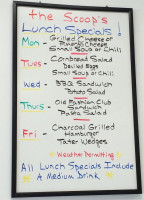 the Scoop's
Lunch Specials!
Mon - Grilled Cheese or
Pimento Cheese
Small Soup or Chili
Tues - Cornbread Salad
Deviled Eggs
Small Soup or Chili
Wed - BBQ Sandwich
Potato Salad
Thurs - Old Fashion Club
Sandwich
Pasta Salad
Fri - Charcoal Grilled
Hamburger
Tater Wedges
Weather Permitting
All Lunch Specials Include
A Medium Drink